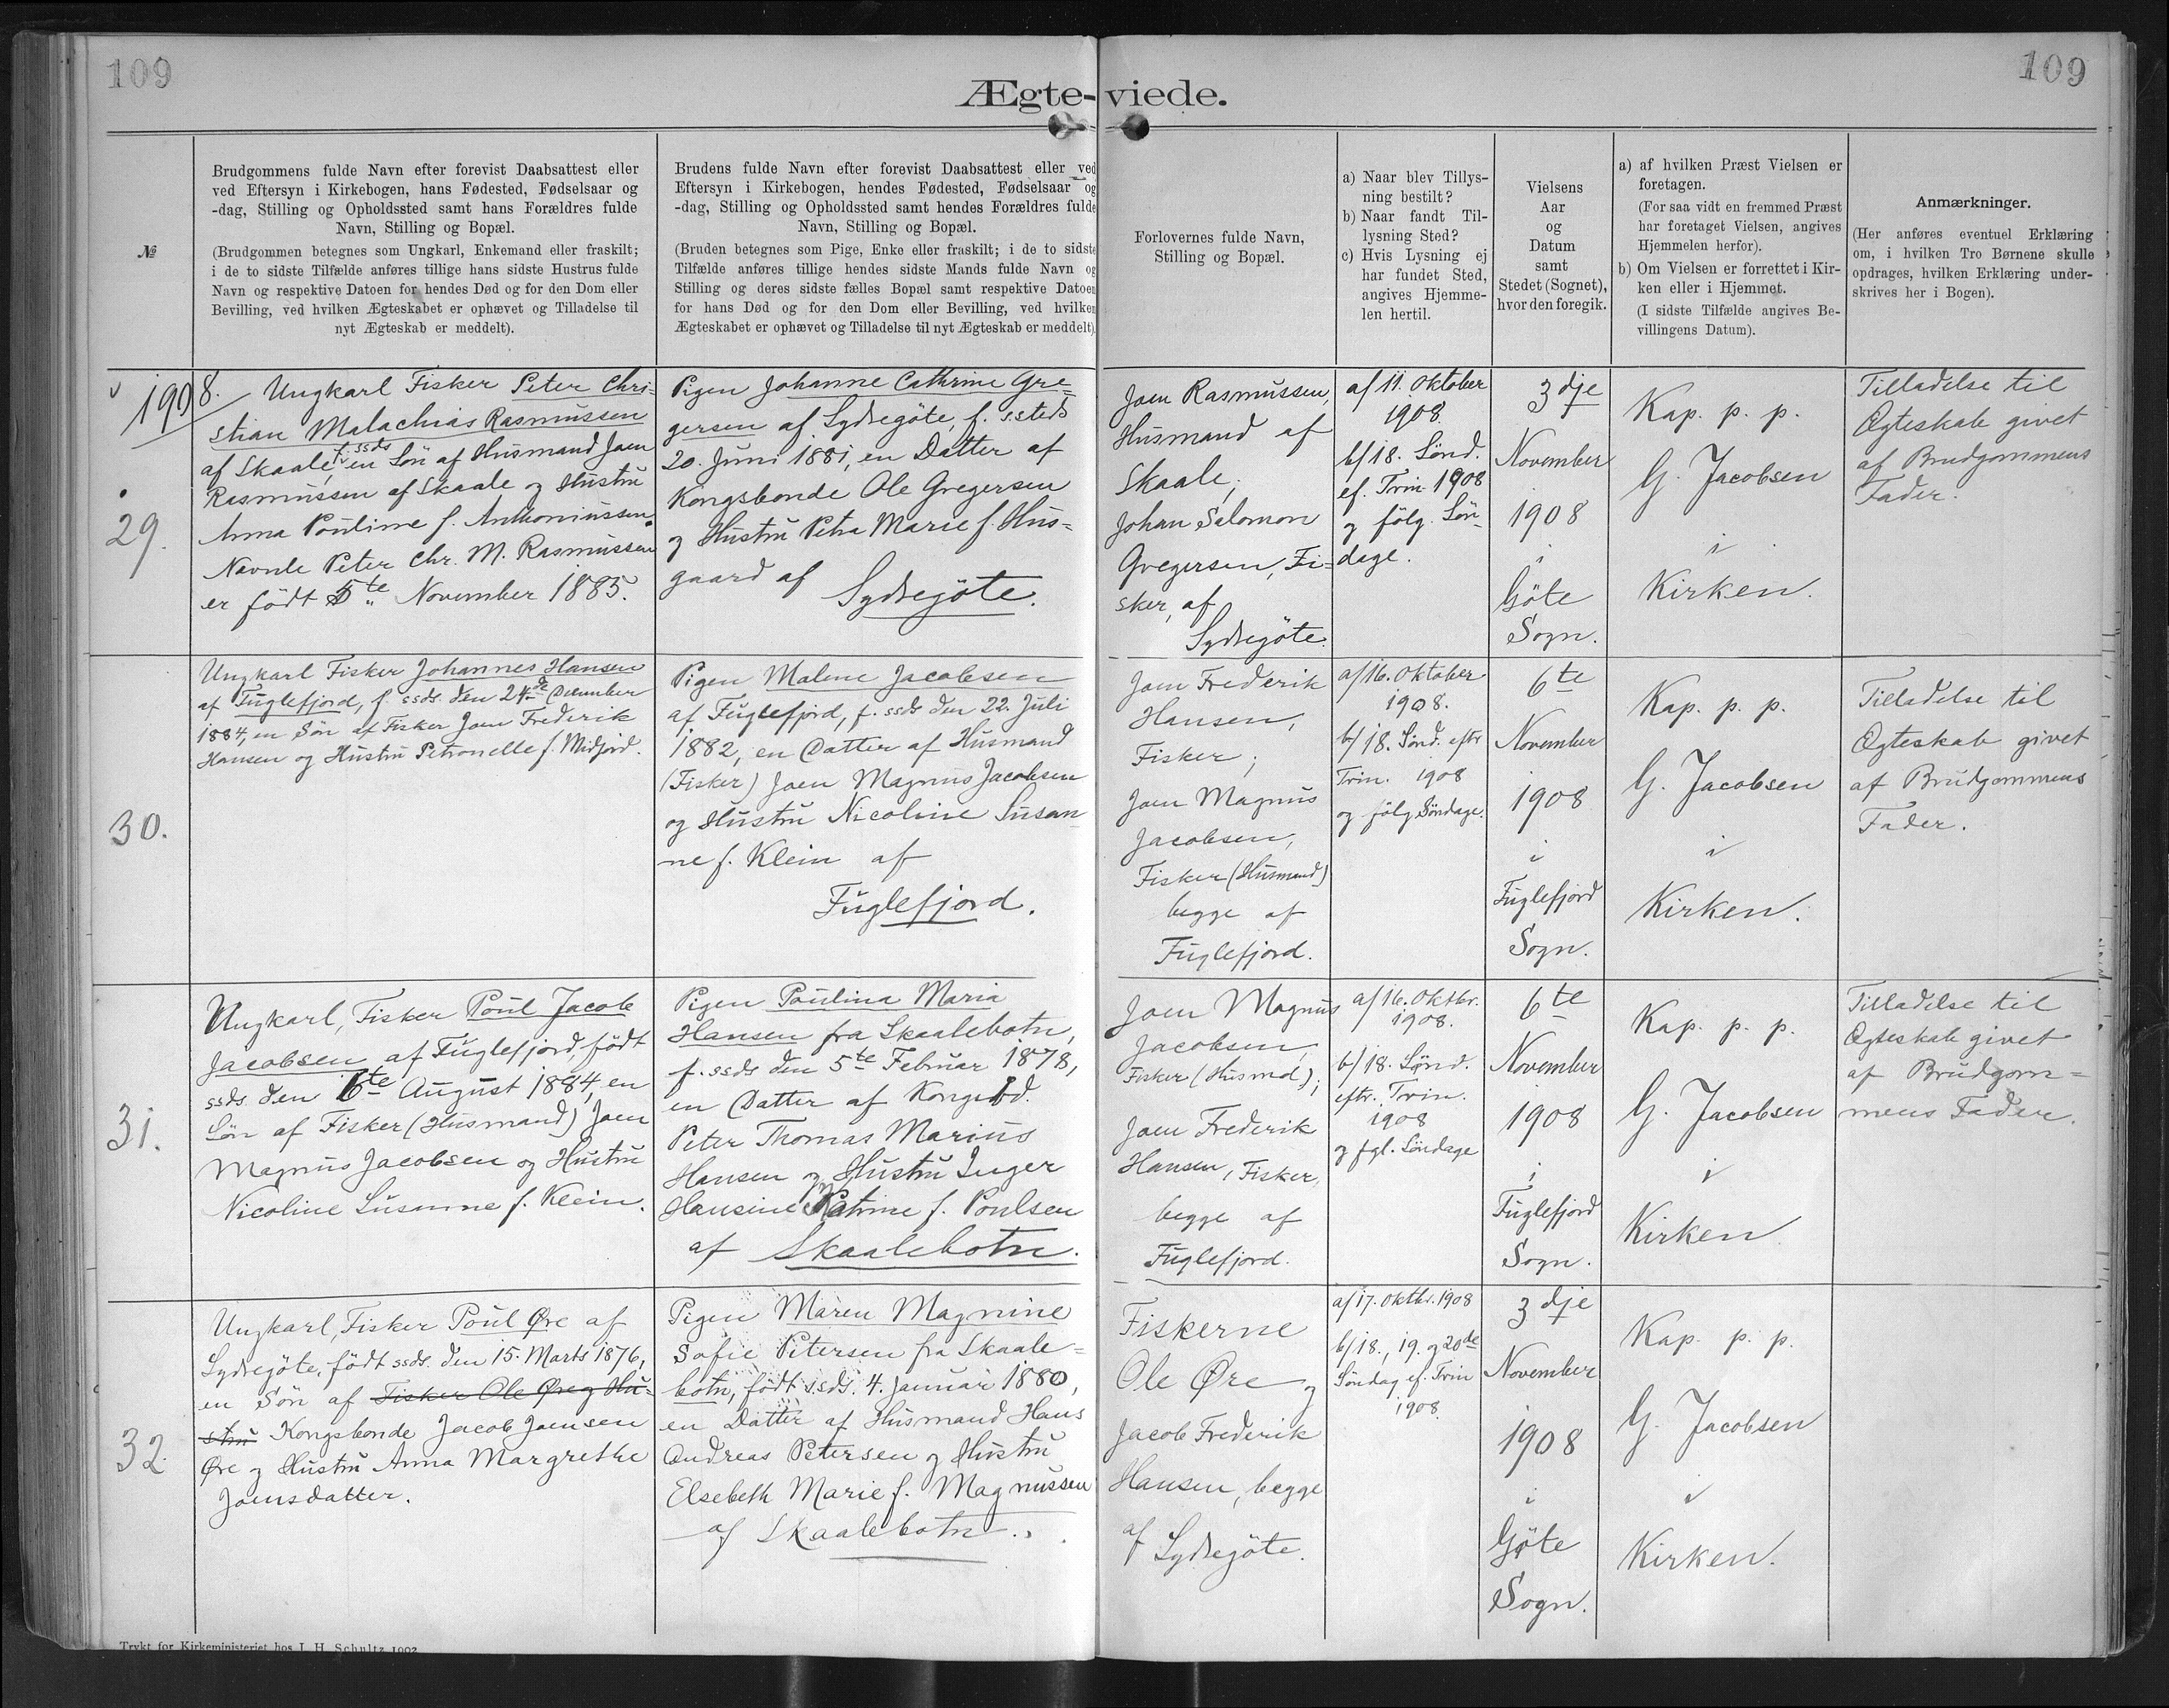 109
109
Ægte-viede.
№
Brudgommens fulde Navn efter forevist Daabsattest eller
ved Eftersyn i Kirkebogen, hans Fødested, Fødselsaar og
-dag, Stilling og Opholdssted samt hans Forældres fulde
Navn, Stilling og Bopæl.
(Brudgommen betegnes som Ungkarl, Enkemand eller fraskilt;
i de to sidste Tilfælde anføres tillige hans sidste Hustrus fulde
Navn og respektive Datoen for hendes Død og for den Dom eller
Bevilling, ved hvilken Ægteskabet er ophævet og Tilladelse til
nyt Ægteskab er meddelt).
Brudens fulde Navn efter forevist Daabsattest eller ved
Eftersyn i Kirkebogen, hendes Fødested, Fødselsaar og
-dag, Stilling og Opholdssted samt hendes Forældres fulde
Navn, Stilling og Bopæl.
(Bruden betegnes som Pige, Enke eller fraskilt; i de to sidste
Tilfælde anføres tillige hendes sidste Mands fulde Navn og
Stilling og deres sidste fælles Bopæl samt respektive Datoen
for hans Død og for den Dom eller Bevilling, ved hvilken
Ægteskabet er ophævet og Tilladelse til nyt Ægteskab er meddelt).
Forlovernes fulde Navn,
Stilling og Bopæl.
a) Naar blev Tillys-
ning bestilt?
b) Naar fandt Til-
lysning Sted?
c) Hvis Lysning ej
har fundet Sted,
angives Hjemme-
len hertil.
Vielsens
Aar
og
Datum
samt
Stedet (Sognet),
hvor den foregik.
a) af hvilken Præst Vielsen er
foretagen.
(For saa vidt en fremmed Præst
har foretaget Vielsen, angives
Hjemmelen herfor).
b) Om Vielsen er forrettet i Kir-
ken eller i Hjemmet.
(I sidste Tilfælde angives Be-
villingens Datum).
Anmærkninger.
(Her anføres eventuel Erklæring
om, i hvilken Tro Børnene skulle
opdrages, hvilken Erklæring under-
skrives her i Bogen).
1908.
29.
Ungkarl Fisker Peter Chri-
stian Malachias Rasmussen
af Skaale, f. ssds en Søn af Husmand Joen
Rasmussen af Skaale og Hustru
Anna Pouline f. Anthoniussen.
Nævnte Peter Chr. M. Rasmussen
er født 5te November 1885.
Pigen Johanne Cathrine Gre-
gersen af Sydregöte, f. s.steds
20. Juni 1881, en Datter af
Kongsbonde Ole Gregersen
og Hustru Petra Marie f. Hus-
gaard af Sydregöte.
Joen Rasmussen,
Husmand af
Skaale;
Johan Salomon
Gregersen, Fi-
sker, af
Sydregöte.
a/ 11. Oktober
1908.
b/ 18. Sønd.
ef. Trin. 1908
og følg. Søn-
dage.
3dje
November
1908
i
Göte
Sogn.
Kap. p. p.
G. Jacobsen
i
Kirken.
Tilladelse til
Ægteskab givet
af Brudgommens
Fader.
30.
Ungkarl Fisker Johannes Hansen
af Fuglefjord, f. ssds. den 24de December
1884, en Søn af Fisker Joen Frederik
Hansen og Hustru Petronelle f. Midjord.
Pigen Malene Jacobsen
af Fuglefjord, f. ssds den 22. Juli
1882, en Datter af Husmand
(Fisker) Joen Magnus Jacobsen
og Hustru Nicoline Susan-
ne f. Klein af
Fuglefjord.
Joen Frederik
Hansen,
Fisker;
Joen Magnus
Jacobsen,
Fisker (Husmand)
begge af
Fuglefjord.
a/ 16. Oktober
1908.
b/ 18. Sønd. eftr
Trin. 1908
og følg Søndage.
6te
November
1908
i
Fuglefjord
Sogn.
Kap. p. p.
G. Jacobsen
i
Kirken.
Tilladelse til
Ægteskab givet
af Brudgommens
Fader.
31.
Ungkarl, Fisker Poul Jacob
Jacobsen af Fuglefjord, født
ssds. den 6te August 1884, en
Søn af Fisker (Husmand) Joen
Magnus Jacobsen og Hustru
Nicoline Susanne f. Klein.
Pigen Poulina Maria
Hansen fra Skaalebotn,
f. ssds den 5te Februar 1878,
en Datter af Kongsbd.
Peter Thomas Marius
Hansen og Hustru Inger
Hansine Katrine f. Poulsen
af Skaalebotn.
Joen Magnus
Jacobsen,
Fisker (Husmd);
Joen Frederik
Hansen, Fisker,
begge af
Fuglefjord.
a/ 16. Oktbr.
1908.
b/ 18. Sønd.
eftr. Trin.
1908
og fgl. Söndage
6te
November
1908
i
Fuglefjord
Sogn.
Kap. p. p.
G. Jacobsen
i
Kirken
Tilladelse til
Ægteskab givet
af Brudgom-
mens Fader.
32.
Ungkarl, Fisker Poul Øre af
Sydregöte, født ssds. den 15. Marts 1876,
en Søn af Fisker Ole Øre og Hu-
stru Kongsbonde Jacob Joensen
Øre og Hustru Anna Margrethe
Joensdatter.
Pigen Maren Magnine
Sofie Petersen fra Skaale-
botn, født s.sds. 4. Januar 1880,
en Datter af Husmand Hans
Andreas Petersen og Hustru
Elsebeth Marie f. Magnussen
af Skaalebotn.
Fiskerne
Ole Øre og
Jacob Frederik
Hansen, begge
af Sydregöte.
a/ 17. Oktbr. 1908
b/ 18., 19. og 20de
Søndag ef. Trin
1908.
3dje
November
1908
i
Göte
Sogn.
Kap. p. p.
G. Jacobsen
i
Kirken.
Trykt for Kirkeministeriet hos J. H. Schultz 1902